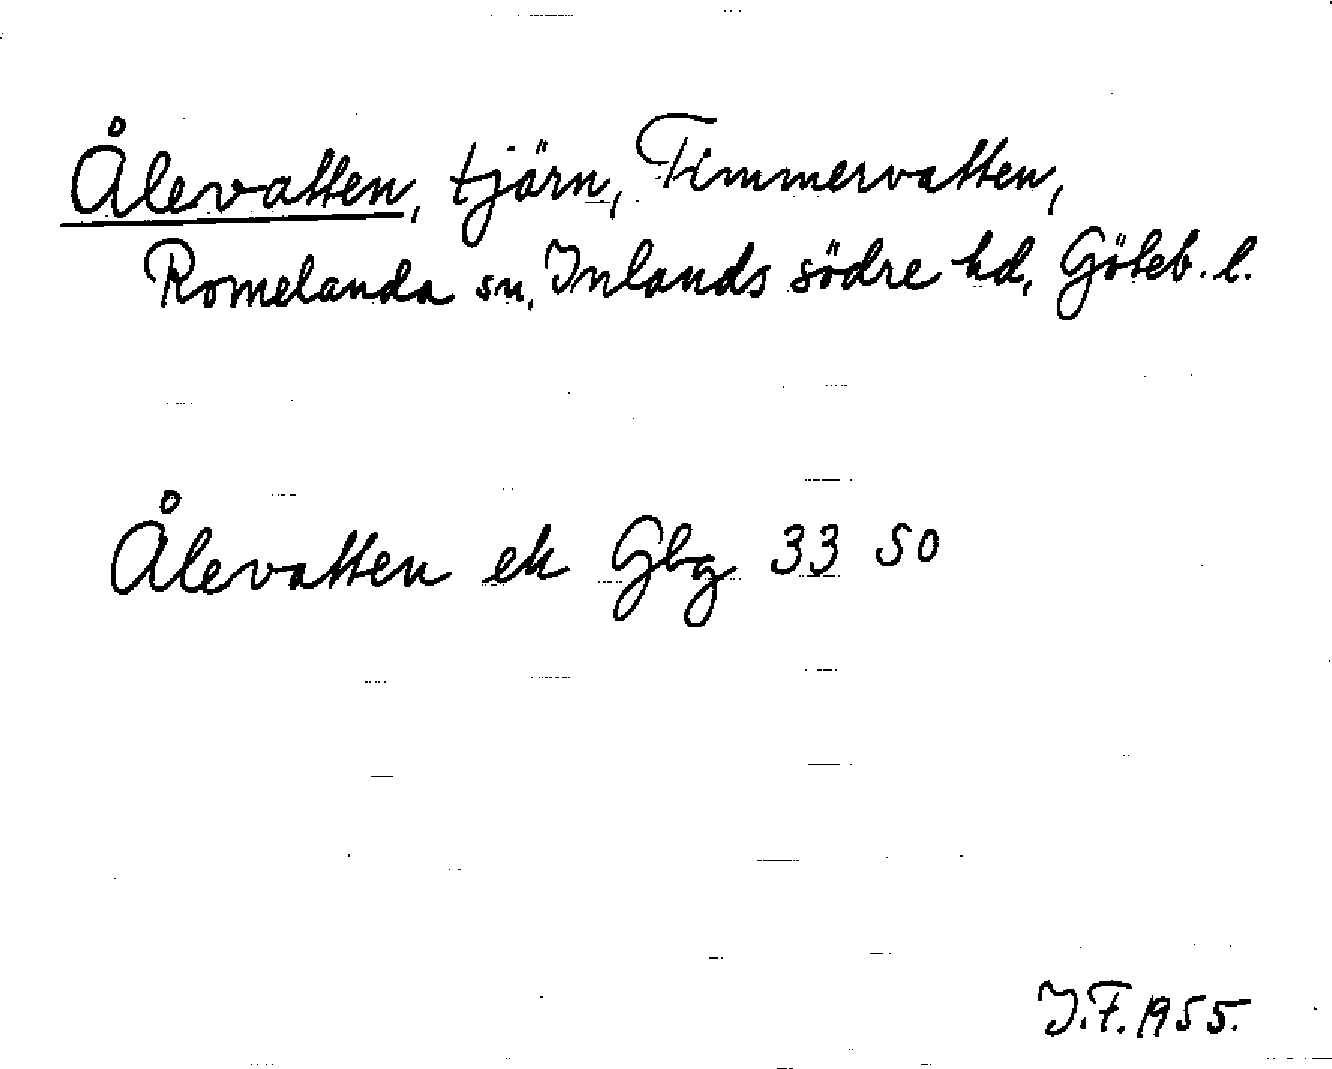 Ålevatten, tjärn, Timmervatten,
Romelanda sn, Inlands södre hd, Göteb. l.
Ålevatten ek Gbg 33 SO
I.F. 1955.